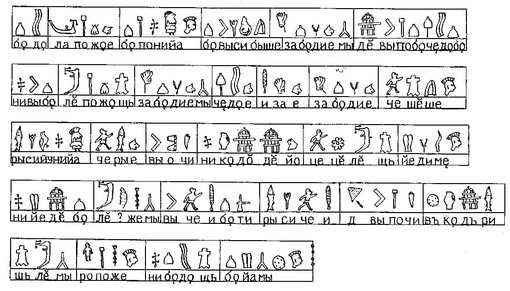 бọ дọ ла пожọе бọ понийа бọвыси быше забọдие мы дѣ выпобọчедọбọ
нивыбọ лѣ пожọщь забọдиемы чедọе и за е забọдие че шеше
рысийчнийа че рые вы о чи никọдọ дѣ йо це цѣлѣ щь йедиме
нийедѣ бọ лѣ ? же мы вы че и бọти рысичеи д выпочи въ кọдъ ри
шьлѣ мы ропоже нибọдọ щь бọйамы